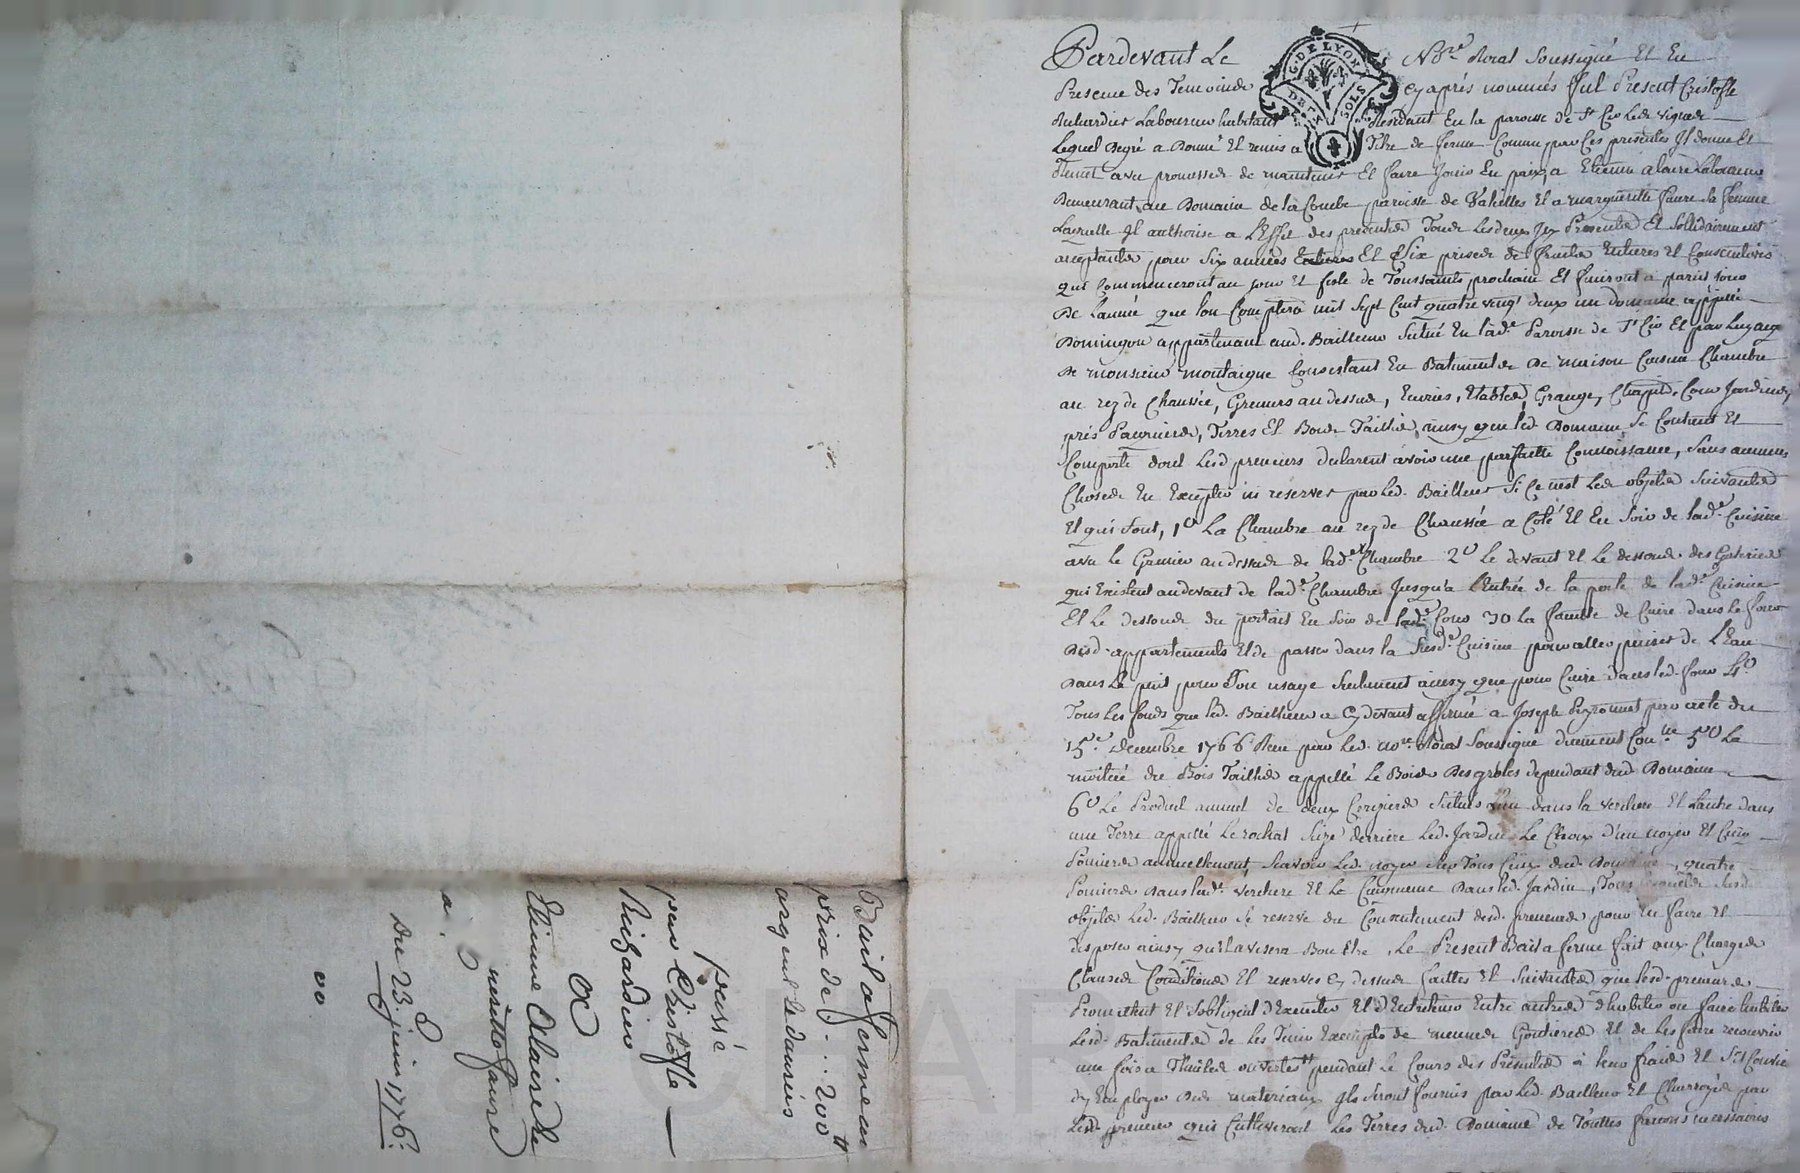 Pardevant Le Nore Roial Soussigné Et En
Presence des Temoins cy aprés nommés fut Present Cristofle
G. DE LYON
DEUX SOLS
Richardier Laboureur habitant Residant En la paroisse de St Cir Les vignes
Lequel degré a Donné Et remis a Titre de ferme Comme par Ces presentes Il donne Et
Remet avec promesse de maintenir Et faire Jouir En paix, a Etienne alaire Laboureur
Demeurant au Domaine de la Combe paroisse de Valeilles Et a margueritte faure sa femme
Laquelle Il authorise a L'Effet des presentes Tous Lesdeux Icy Presents Et Sollidairement
acceptants, pour Six années Entieres Et Six prises de fruits Entieres Et Consecutives
qui Commenceront au jour Et feste de Toussaints prochain Et finiront a pareil jour
De L'année que l'on Comptera mil Sept Cent quatre vingt deux un domaine appellé
Domingon appartenant aud. Bailleur Situé En lade Paroisse de St Cir Et par
De monsieur montaigne Consistant En Batiments De maison Cuisine Chambre
au rez de Chaussée, Greniers au dessus, Ecuries, Etables, Grange, Chapit, Cour Jardins
prés Paquiers, Terres Et Bois Taillis, ainsy que led. Domaine Se Contient Et
Comporte dont Lesd preneurs declarent avoir une parfaitte Connoissance, Sans aucunes
Choses En Excepter ni reserver par Led. Bailleur Si Ce n'est Les objets Suivants
Et qui Sont, 1o La Chambre au rez de Chaussée a Coté Et En Soir de lade Cuisine
avec le Grenier au dessus de lade Chambre 2o Le devant Et Le dessous des Galeries
qui Existent audevant de lade Chambre Jusqu'a l'Entrée de la porte de lade Cuisine
Et Le dessous du portait En Soir de lade Cour 3o La faculté de Cuire dans le four
desd. appartements Et de passer dans la Susde Cuisine pour aller puiser de L'Eau
dans Le puit pour Son usage Seulement ainsy que pour Cuire dans led. four 4o
Tous Les fonds que led. Bailleur a Cy devant affermé a Joseph Peyronnet par acte du
15e decembre 1766 Recu par Led. nore Roial Soussigné duement Con 5o La
moitiée du Bois Taillis appellé Le Bois Desgroles dependant dud Domaine
6o Le Produit annuel de deux Cerisiers Situés L'un dans la verchere Et L'autre dans
une Terre appellé Le rochat Size derriere Led. Jardin Le Choix d'un noyer Et Cinq
Pomiers annuellement, Scavoir Led. noyer Sur Tous Ceux dud. Domaine, quatre
Pomiers dans lade. verchere Et Le Cinquieme Dans led. Jardin, Tous Lesquels Susd
objets Led. Bailleur Se reserve du Consentement desd. preneurs pour En faire Et
disposer ainsy qu'il avisera Bon Etre, Le Present Bail a ferme fait aux Charges
Clauses Conditions Et reserves Cy dessus faittes Et Suivantes que lesd. preneurs
Promettent Et S'obligent d'Executer Et d'Entretenir Entre autres d'habiter ou faire habiter
Lesd. Batiments de Les Tenir Exempts de menues Goutieres Et de Les faire recouvrir
une fois a Thuiles ouvertes pendant Le Cours des Présentes à leurs fraix Et Sil Convie
d'y Employer des materiaux Ils Seront fournis par Led. Bailleur Et Charroyés par
Lesd. preneurs qui Cultiveront Les Terres dud. Domaine de Toutes facons necessaires
Bail a ferme au
prix de . . . 200tt
argent Le danrées
passé
par Christofle
Richardier
a
Etienne Alaire de
a.
faure
Du 23 juin 1776: